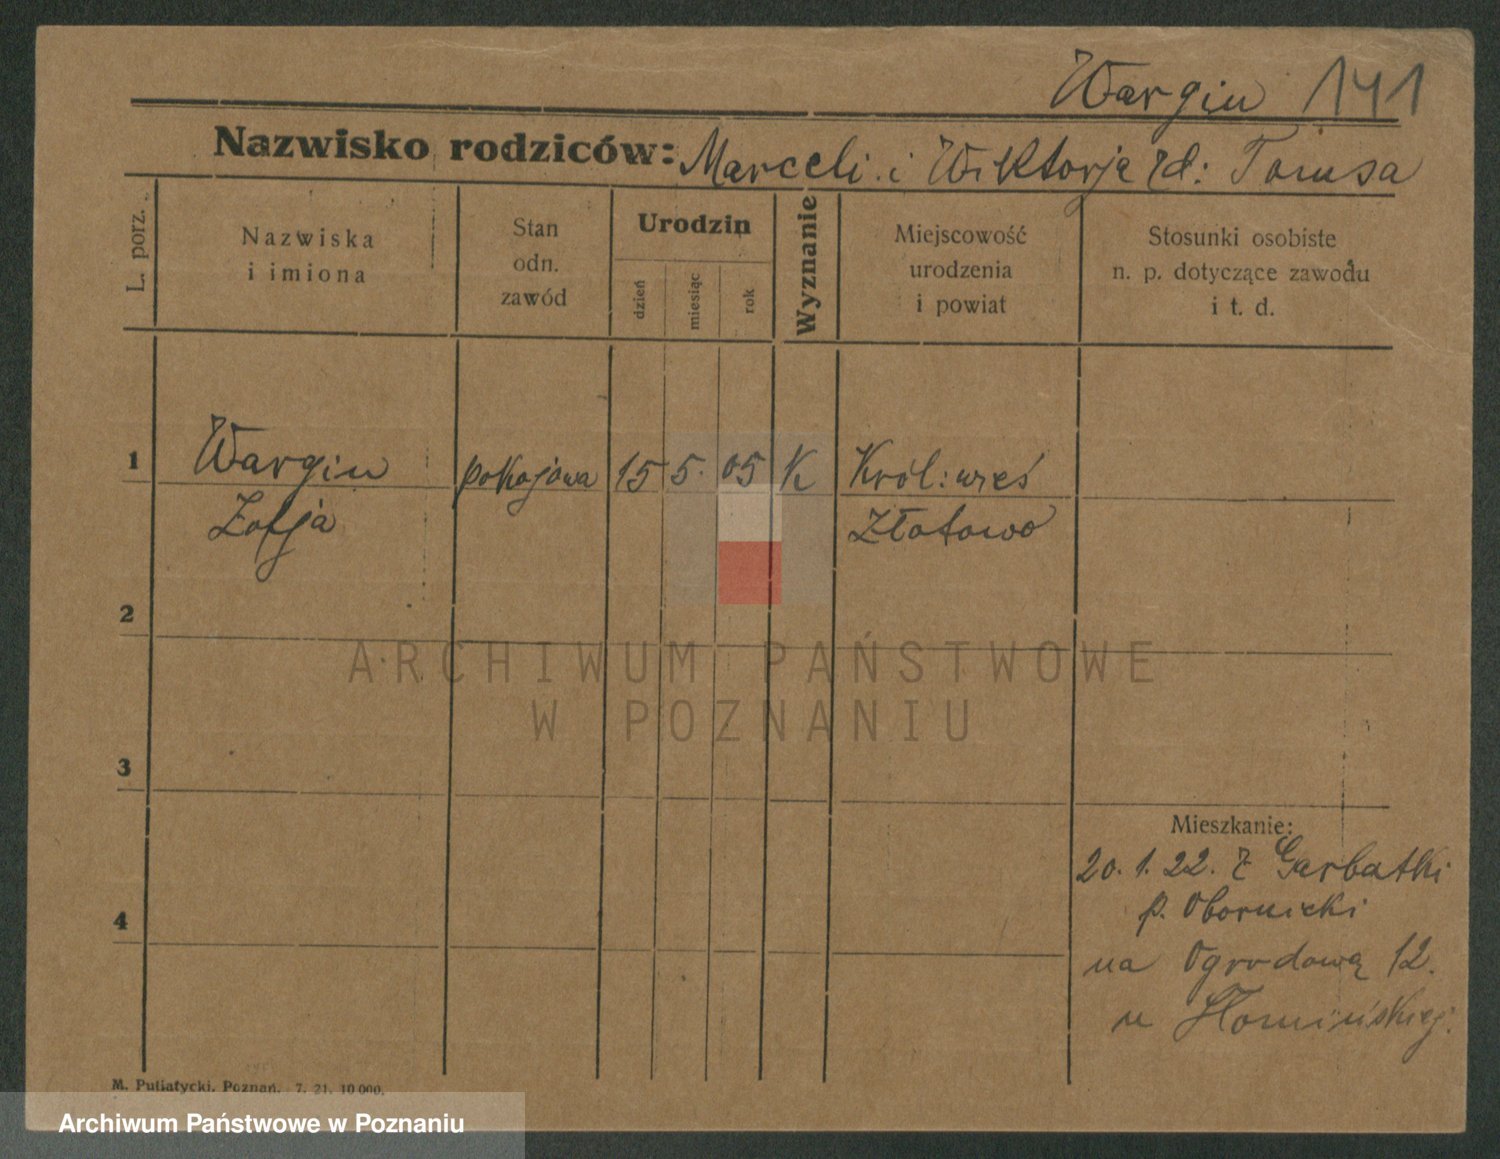 Wargin 141
Nazwisko rodziców: Marceli i Wiktorja zd: Tomsa
L. porz.
Nazwiska
i imiona
Stan
odn.
zawód
Urodzin
dzień
miesiąc
rok
Wyznanie
Miejscowość
urodzenia
i powiat
Stosunki osobiste
n. p. dotyczące zawodu
i t. d.
1 Wargin pokojowa 15 5. 05 K Król: wieś
Zofja Złotowo
2
ARCHIWUM PAŃSTWOWE
W POZNANIU
3
Mieszkanie:
20. 1. 22. z Garbatki
p. Obornicki
4
na Ogrodową 12.
u Słomińskiej.
M. Putiatycki, Poznań. 7. 21. 10 000.
Archiwum Państwowe w Poznaniu